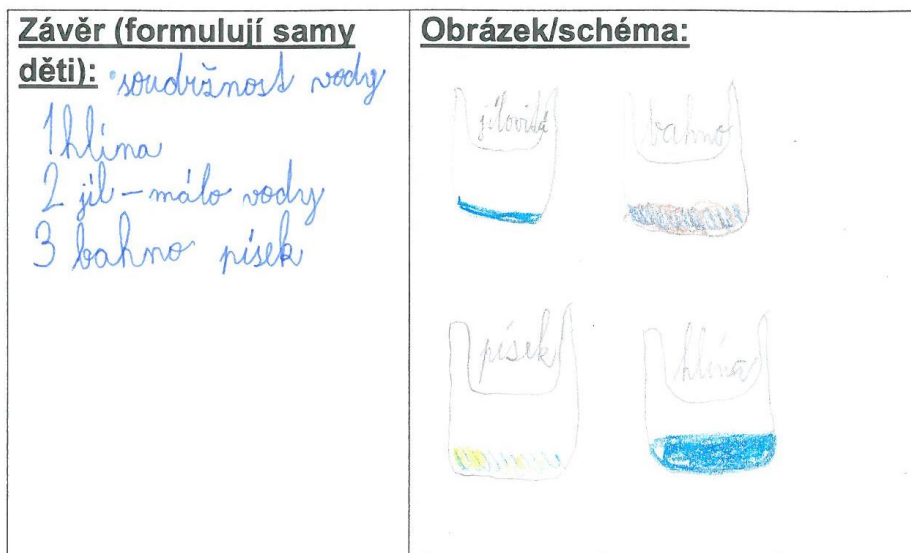 Závěr (formulují samy
děti): soudržnost vody
1 hlína
2 jíl – málo vody
3 bahno písek
Obrázek/schéma:
jílovitá
bahno
písek
hlína